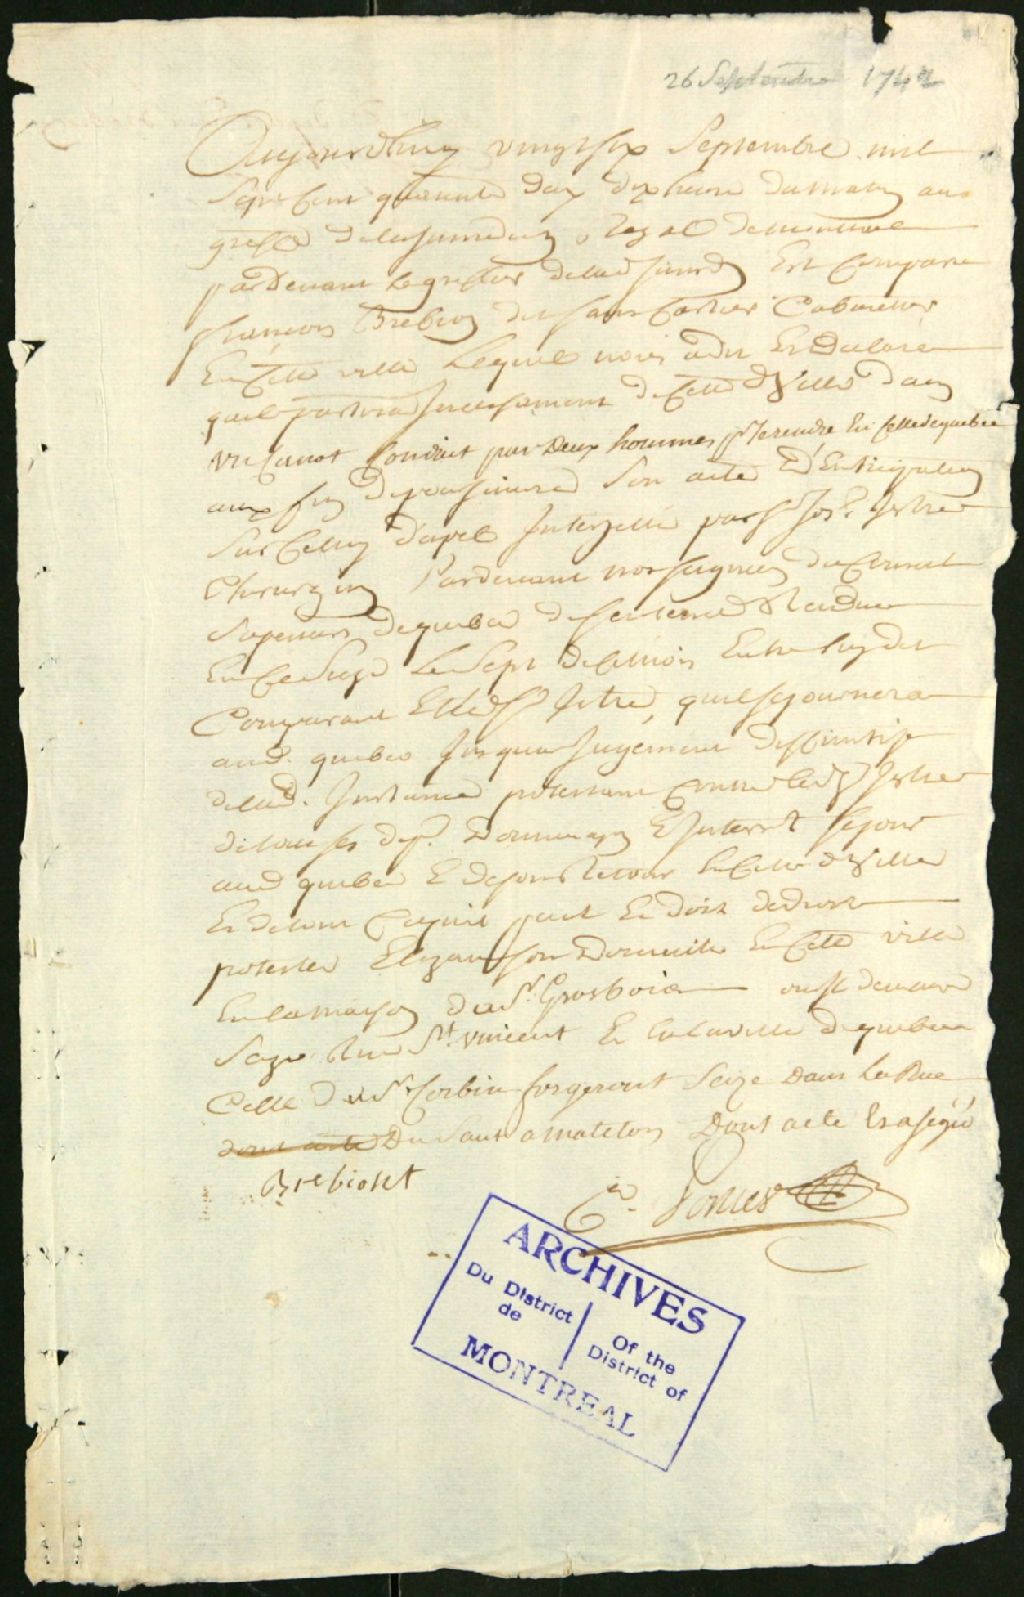 26 Septembre 1742
Aujourdhuy vingt six Septembre mil
Sept Cent quarante deux dix heure du matin au
greffe de la Jurisdion Royal de montreal
pardevant le greffier de lad Jurisdon Est Comparu
francois Brebion dit sans Cartier Cabaretier
En Cette ville Lequel nous a dit Et Declaré
quil partira Incessament de Cette d Ville dans
un Canot Conduit par Deux hommes pr se rendre En Celle de quebec
aux fins de poursuivre Son acte d'Enticipation
Sur Celluy d'apel Interjetté par Sr Jos.
Chirurgien Pardevant nosseigneurs du Conseil
Superieur de quebec de sentence Rendue
En Ce Siege Le Sept de Ce mois Entre luy dit
Comparant Et led Sr quil sejournera
aud. quebec Jusqua Jugement deffinitif
de lad. Instance protestant Contre led Sr
de tous ses dep. Dommages Et Interest sejour
aud quebec Et de son Retour En Cette d Ville
Et de tout Ce quil peut Et doit de droit
protester Elizant son Domicile En Cette ville
En la maison du Sr. Grosbois
Rue St. vincent Et En la ville de quebec
Celle du Sr Corbin forgeront Seize Dans La Rue
dont acte Du Saut a matelot Dont acte Et a signé
Brebiont
ARCHIVES
Du District
de
Of the
District of
MONTREAL